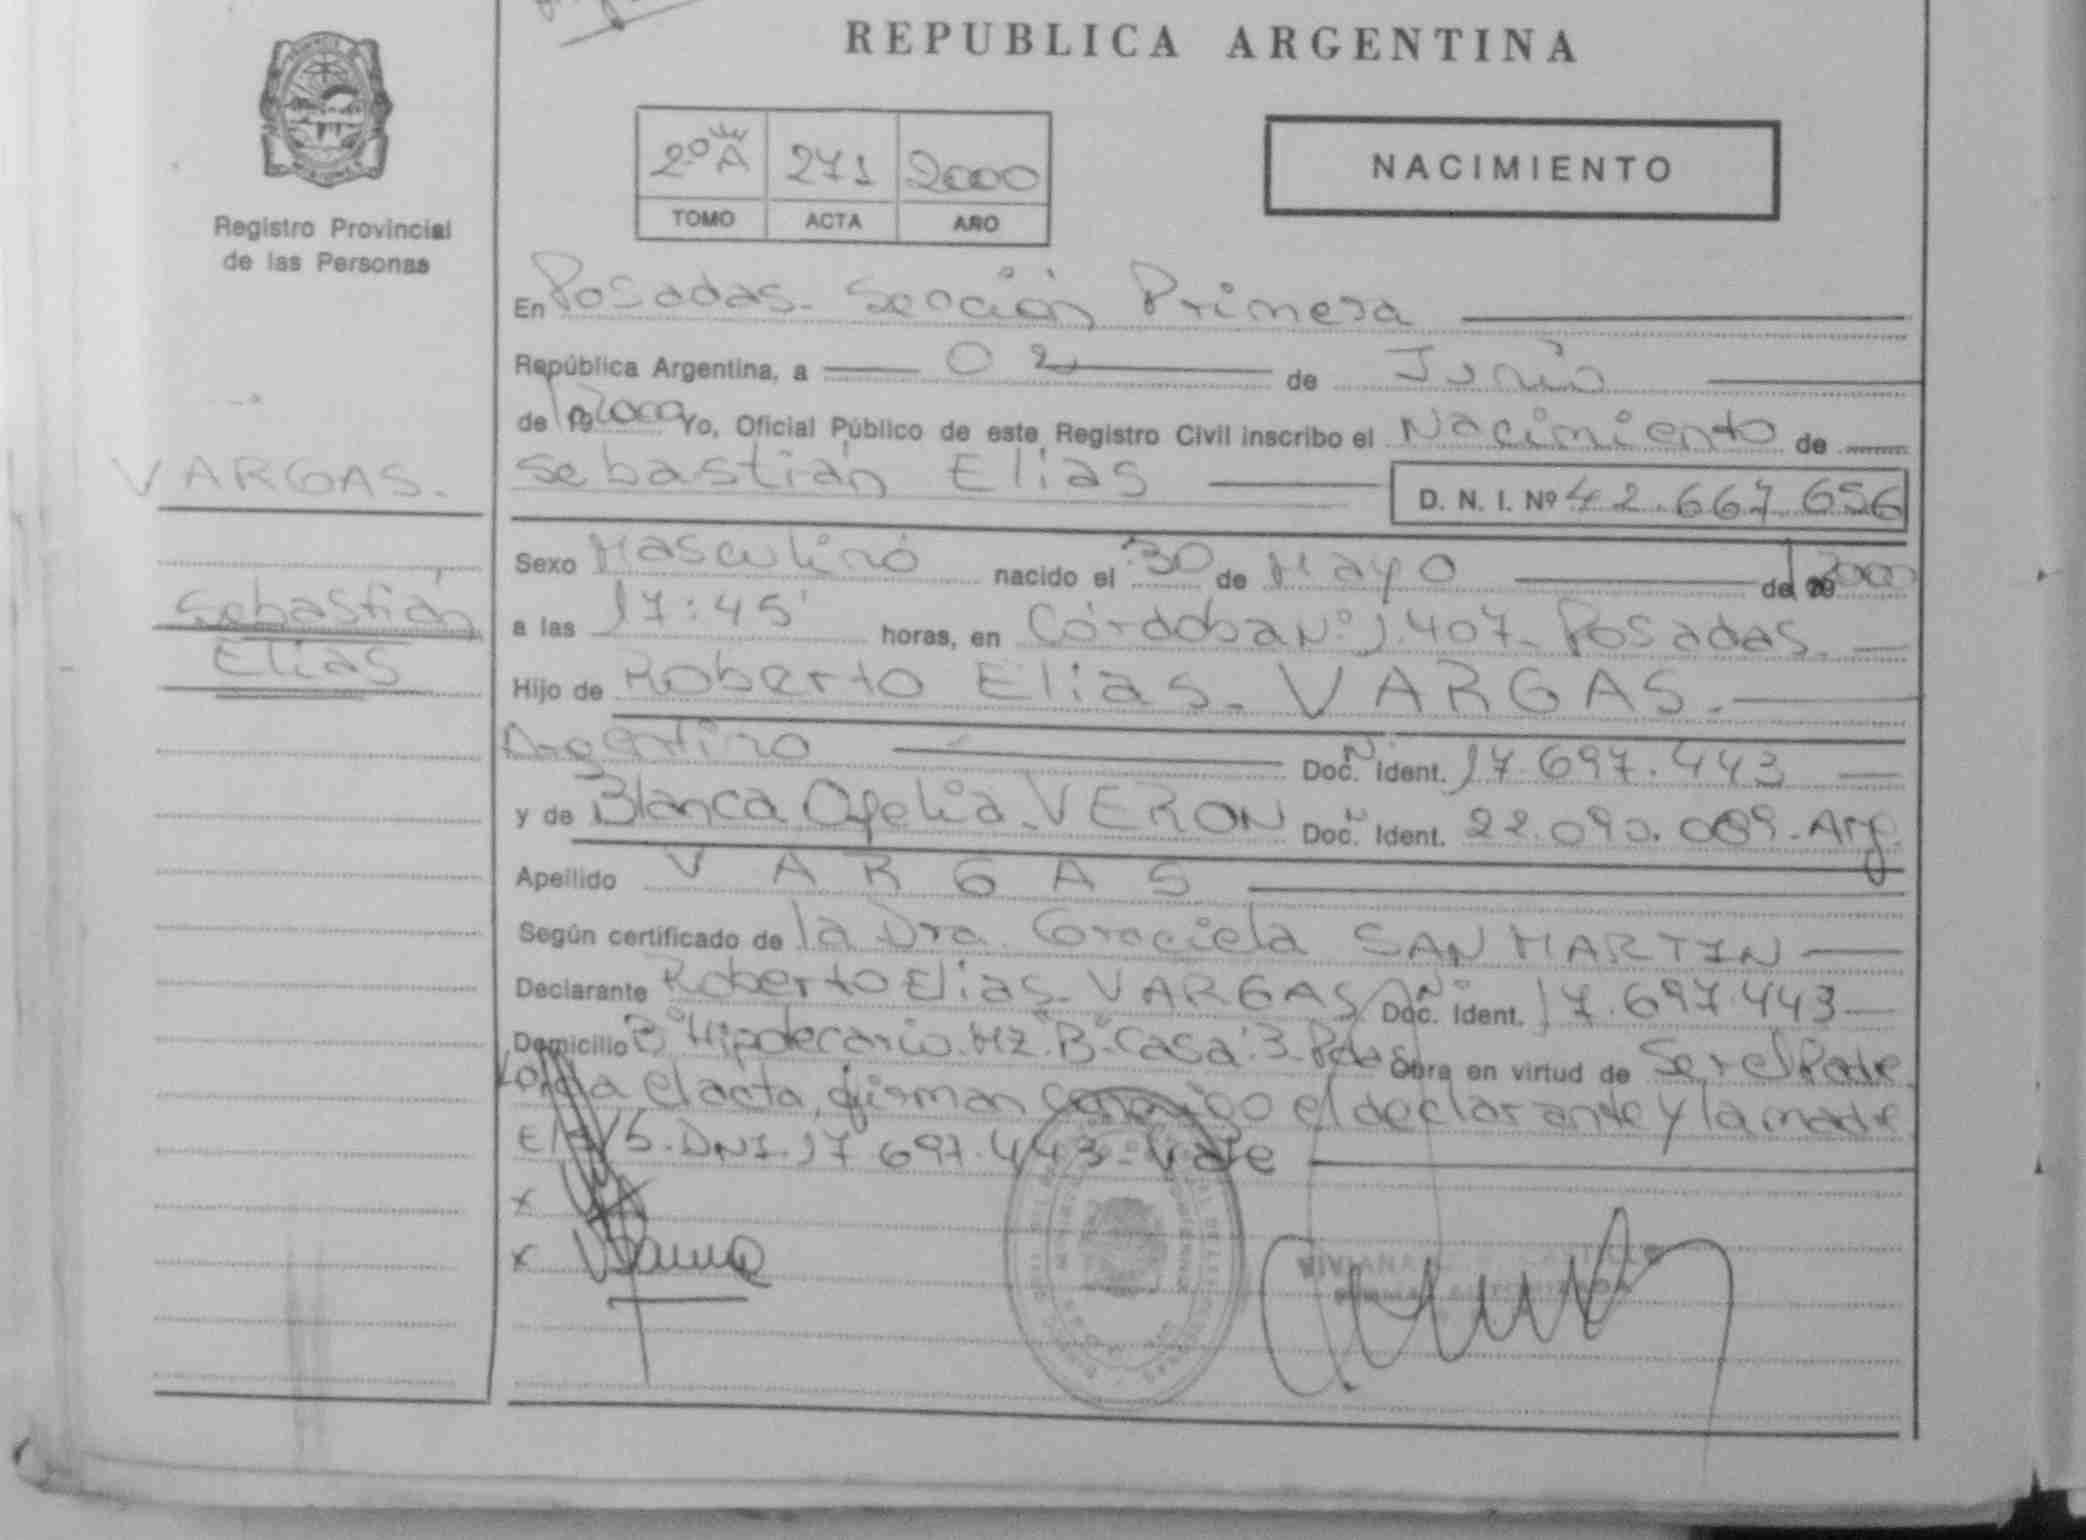 REPUBLICA ARGENTINA
Registro Provincial
de las Personas
2º A 271 2000
TOMO ACTA AÑO
NACIMIENTO
En Posadas - Sección Primera
República Argentina, a 02 de Junio
de 19 2000 Yo, Oficial Público de este Registro Civil inscribo el Nacimiento de
VARGAS.
Sebastián Elias D. N. I. Nº 42.667.656
Sexo Masculino nacido el 30 de Mayo de 19 2000
Sebastián
Elias
a las 17:45' horas, en Córdoba Nº 1.407 - Posadas.
Hijo de Roberto Elias - VARGAS.
Argentino Doc. Ident. 17.697.443
y de Blanca Ofelia - VERON Doc. Ident. 22.090.089 - Arg.
Apellido VARGAS
Según certificado de la Dra. Graciela SAN MARTIN
Declarante Roberto Elias - VARGAS Doc. Ident. 17.697.443
Domicilio Bº Hipotecario - Mz. "B" - Casa: 3 - Pdas Obra en virtud de Ser el Padre.
el acta, firman conmigo el declarante y la madre
DNI. 17.697.443 - Vale
x
x
VIVIANA CASTILLO
FIRMA AUTORIZADA